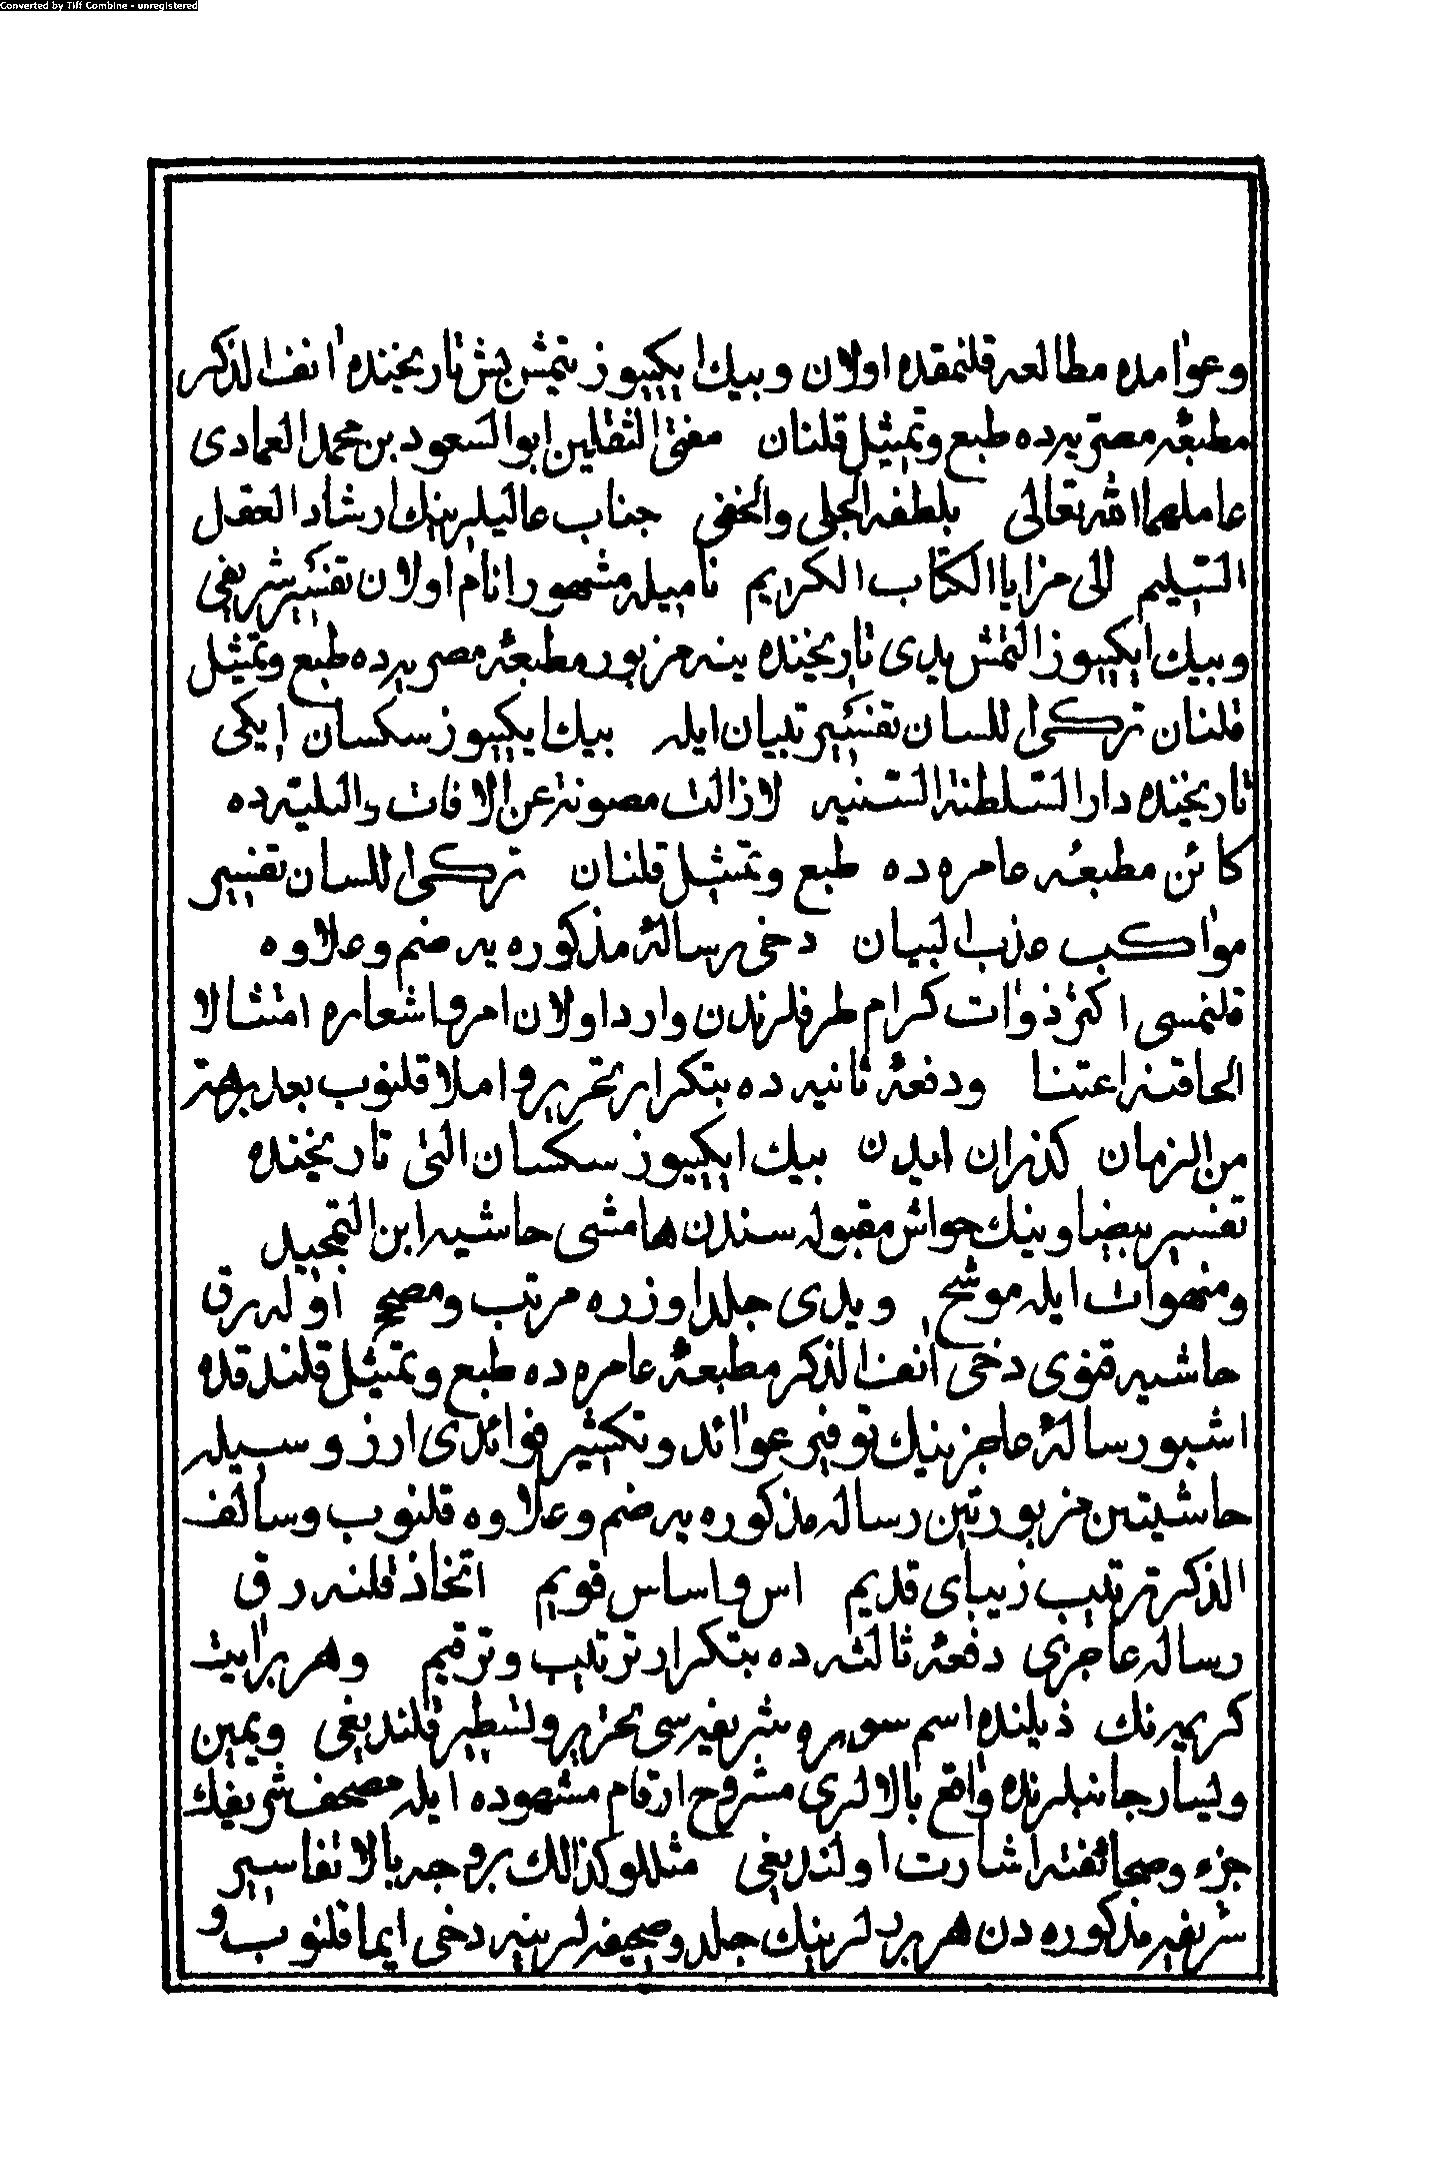 Converted by Tiff Combine - unregistered
وعوامده مطالعه قلنمقده اولان وبيك ايكييوز يتمش بش تاريخنده انف الذكر
مطبعۀ مصريه ده طبع وتمثيل قلنان مفتى الثقلين ابو السعود بن محمد العمادى
عاملهما الله تعالى بلطفه الجلى والخفى جناب عاليلرينك ارشاد العقل
السليم الى مزايا الكتاب الكريم ناميله مشهور انام اولان تفسير شريفى
وبيك ايكييوز التمش يدى تاريخنده ينه مزبور مطبعۀ مصريه ده طبع وتمثيل
قلنان تركى اللسان تفسير تبيان ايله بيك ايكييوز سكسان ايكى
تاريخنده دار السلطنة السنيه لازالت مصونة عن الافات والبليه ده
كائن مطبعۀ عامره ده طبع وتمثيل قلنان تركى اللسان تفسير
مواكب عذب البيان دخى رسالۀ مذكوره يه ضم وعلاوه
قلنمسى اكثر ذوات كرام طرفلرندن وارد اولان امر واشعاره امتثالا
الحاقنه اعتنا ودفعۀ ثانيه ده بتكرار تحرير واملا قلنوب بعد برهة
من الزمان كذران ايدن بيك ايكييوز سكسان التى تاريخنده
تفسير بيضاوينك حواش مقبوله سندن هامشى حاشيه ابن التمجيد
ومنهوات ايله موشح ويدى جلد اوزره مرتب ومصحح اوله رق
حاشيه قنوى دخى انف الذكر مطبعۀ عامره ده طبع وتمثيل قلندقده
اشبو رسالۀ عاجزينك توفير عوائد وتكثير فوائدى ارزوسيله
حاشيتين مزبورتين رساله مذكوره يه ضم وعلاوه قلنوب وسالف
الذكر ترتيب زيباى قديم اس واساس قويم اتخاذ قلنه رق
رساله عاجزى دفعۀ ثالثه ده بتكرار ترتيب وترقيم وهر برايت
كريمه نك ذيلنده اسم سوره شريفه سى تحرير وتسطير قلنديغى ويمين
ويسار جانبلرنده واقع بالالرى مشروح ارقام مشهوده ايله مصحف شريفك
جزء وصحائفنه اشارت اولنديغى مثللو كذالك بروجه بالا تفاسير
شريفه مذكوره دن هر برلرينك جلد وصحيفه لرينه دخى ايما قلنوب و